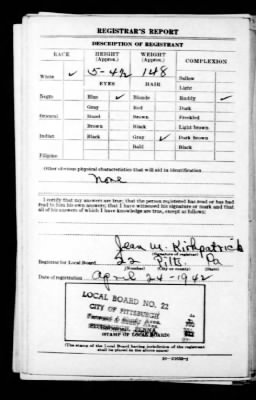 REGISTRAR'S REPORT
DESCRIPTION OF REGISTRANT
RACE HEIGHT (Approx.) WEIGHT (Approx.) COMPLEXION
White ✓ 5-4½ 148 Sallow
EYES HAIR Light
Negro Blue ✓ Blonde Ruddy ✓
Gray Red Dark
Oriental Hazel Brown Freckled
Brown Black Light brown
Indian Black Gray ✓ Dark brown
Bald Black
Filipino
Other obvious physical characteristics that will aid in identification
None
I certify that my answers are true; that the person registered has read or has had
read to him his own answers; that I have witnessed his signature or mark and that
all of his answers of which I have knowledge are true, except as follows:
Jean M. Kirkpatrick
(Signature of registrar)
Registrar for Local Board 22 Pitts. Pa
(Number) (City or county) (State)
Date of registration April 24-1942
LOCAL BOARD NO. 22
CITY OF PITTSBURGH
(STAMP OF LOCAL BOARD)
(The stamp of the Local Board having jurisdiction of the registrant
shall be placed in the above space)